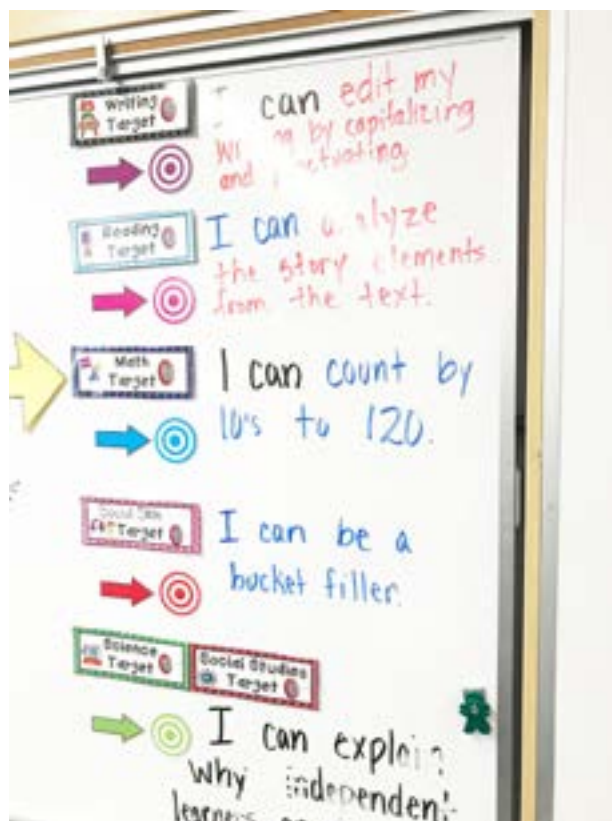 Writing
Target
I can edit my
by capitalizing
and
Reading
Target
I can analyze
the story elements
from the text.
Math
Target
I can count by
10's to 120.
Social Skill
Target
I can be a
bucket filler.
Science
Target
Social Studies
Target
I can explain
why independent
learners